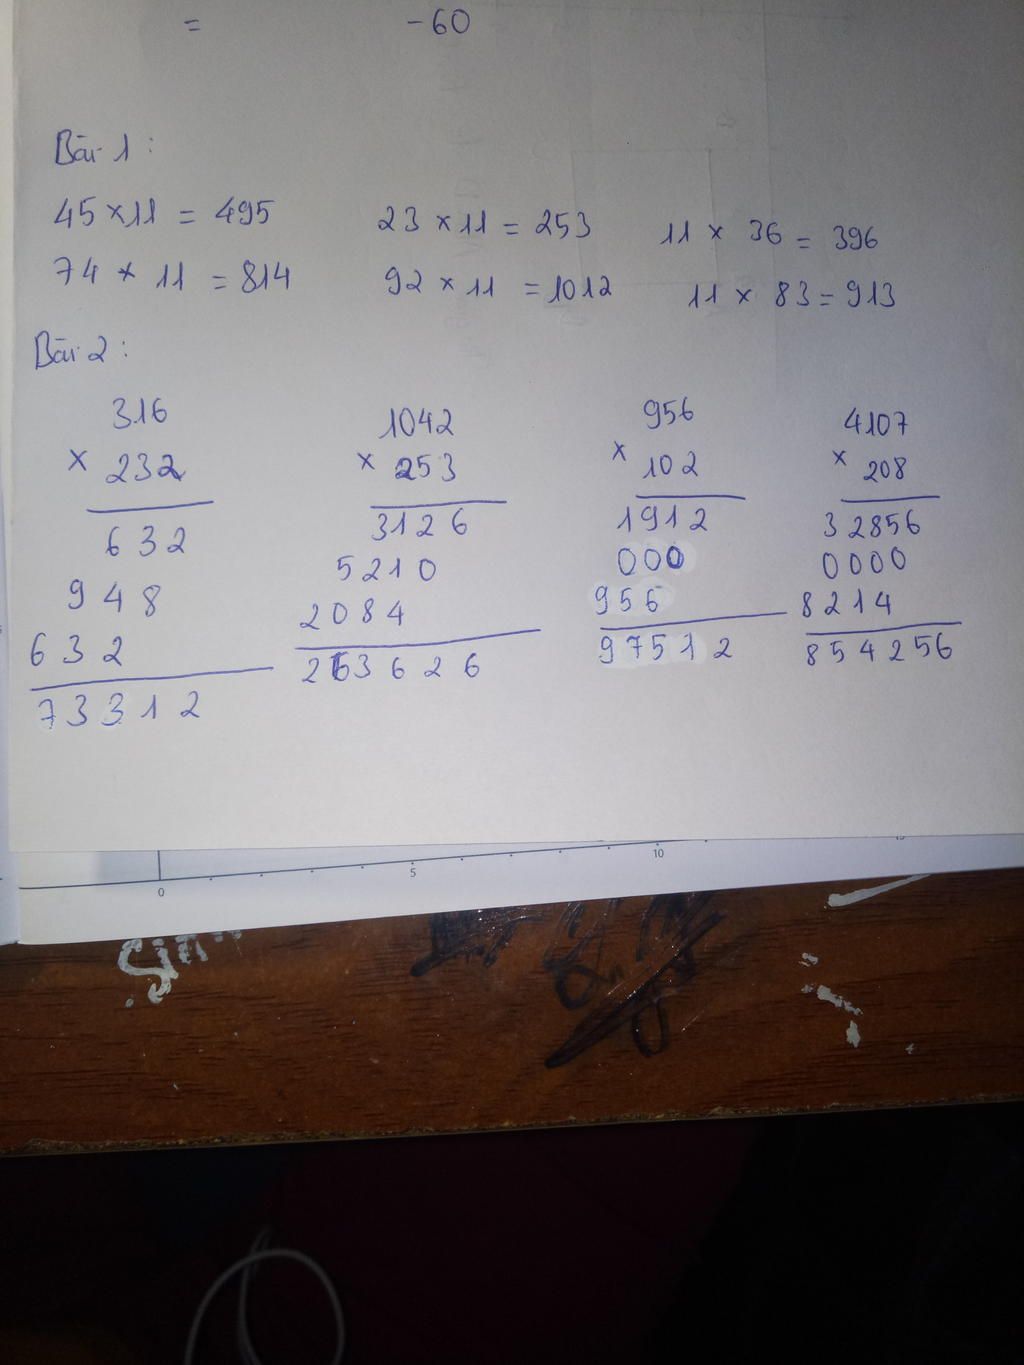 = -60
Bài 1 :
45 × 11 = 495 23 × 11 = 253 11 × 36 = 396
74 × 11 = 814 92 × 11 = 1012 11 × 83 = 913
Bài 2 :
316 1042 956 4107
× 232 × 253 × 102 × 208
632 3126 1912 32856
948 5210 000 0000
632 2084 956 8214
73312 263626 97512 854256
0 5 10